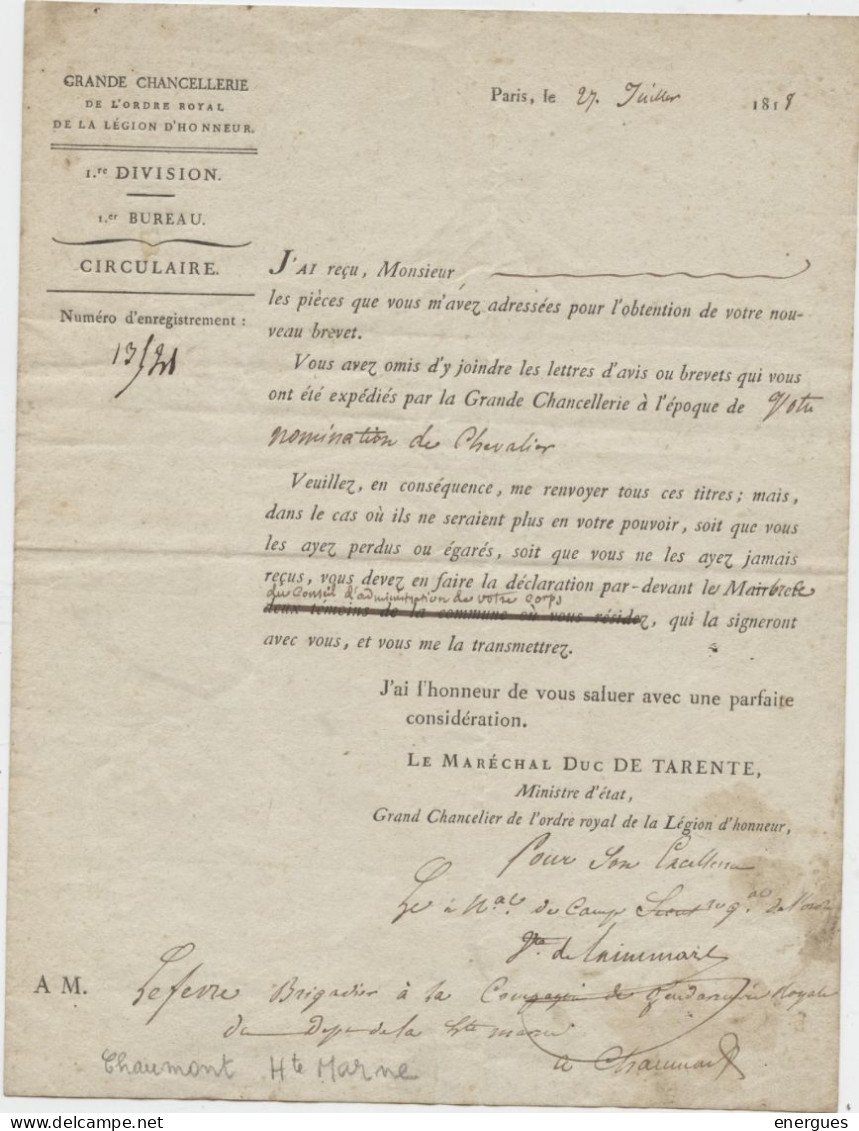 GRANDE CHANCELLERIE
DE L'ORDRE ROYAL
DE LA LÉGION D'HONNEUR.
1.re DIVISION.
1.er BUREAU.
CIRCULAIRE.
Numéro d'enregistrement :
Paris, le 27. Juillet 1818
J'AI reçu, Monsieur
les pièces que vous m'avez adressées pour l'obtention de votre nou-
veau brevet.
Vous avez omis d'y joindre les lettres d'avis ou brevets qui vous
ont été expédiés par la Grande Chancellerie à l'époque de Votre
nomination de Chevalier
Veuillez, en conséquence, me renvoyer tous ces titres ; mais,
dans le cas où ils ne seraient plus en votre pouvoir, soit que vous
les ayez perdus ou égarés, soit que vous ne les ayez jamais
reçus, vous devez en faire la déclaration par-devant le
du Conseil d'administration de votre Corps
deux témoins de la commune où vous résidez, qui la signeront
avec vous, et vous me la transmettrez.
J'ai l'honneur de vous saluer avec une parfaite
considération.
LE MARÉCHAL DUC DE TARENTE,
Ministre d'état,
Grand Chancelier de l'ordre royal de la Légion d'honneur,
Pour Son Excellence
Le de Camp
A M. Lefevre Brigadier à la Compagnie de Gendarmerie Royale
du Dept de la Hte marne
a Chaumont
Chaumont Hte Marne
delcampe.net
energues